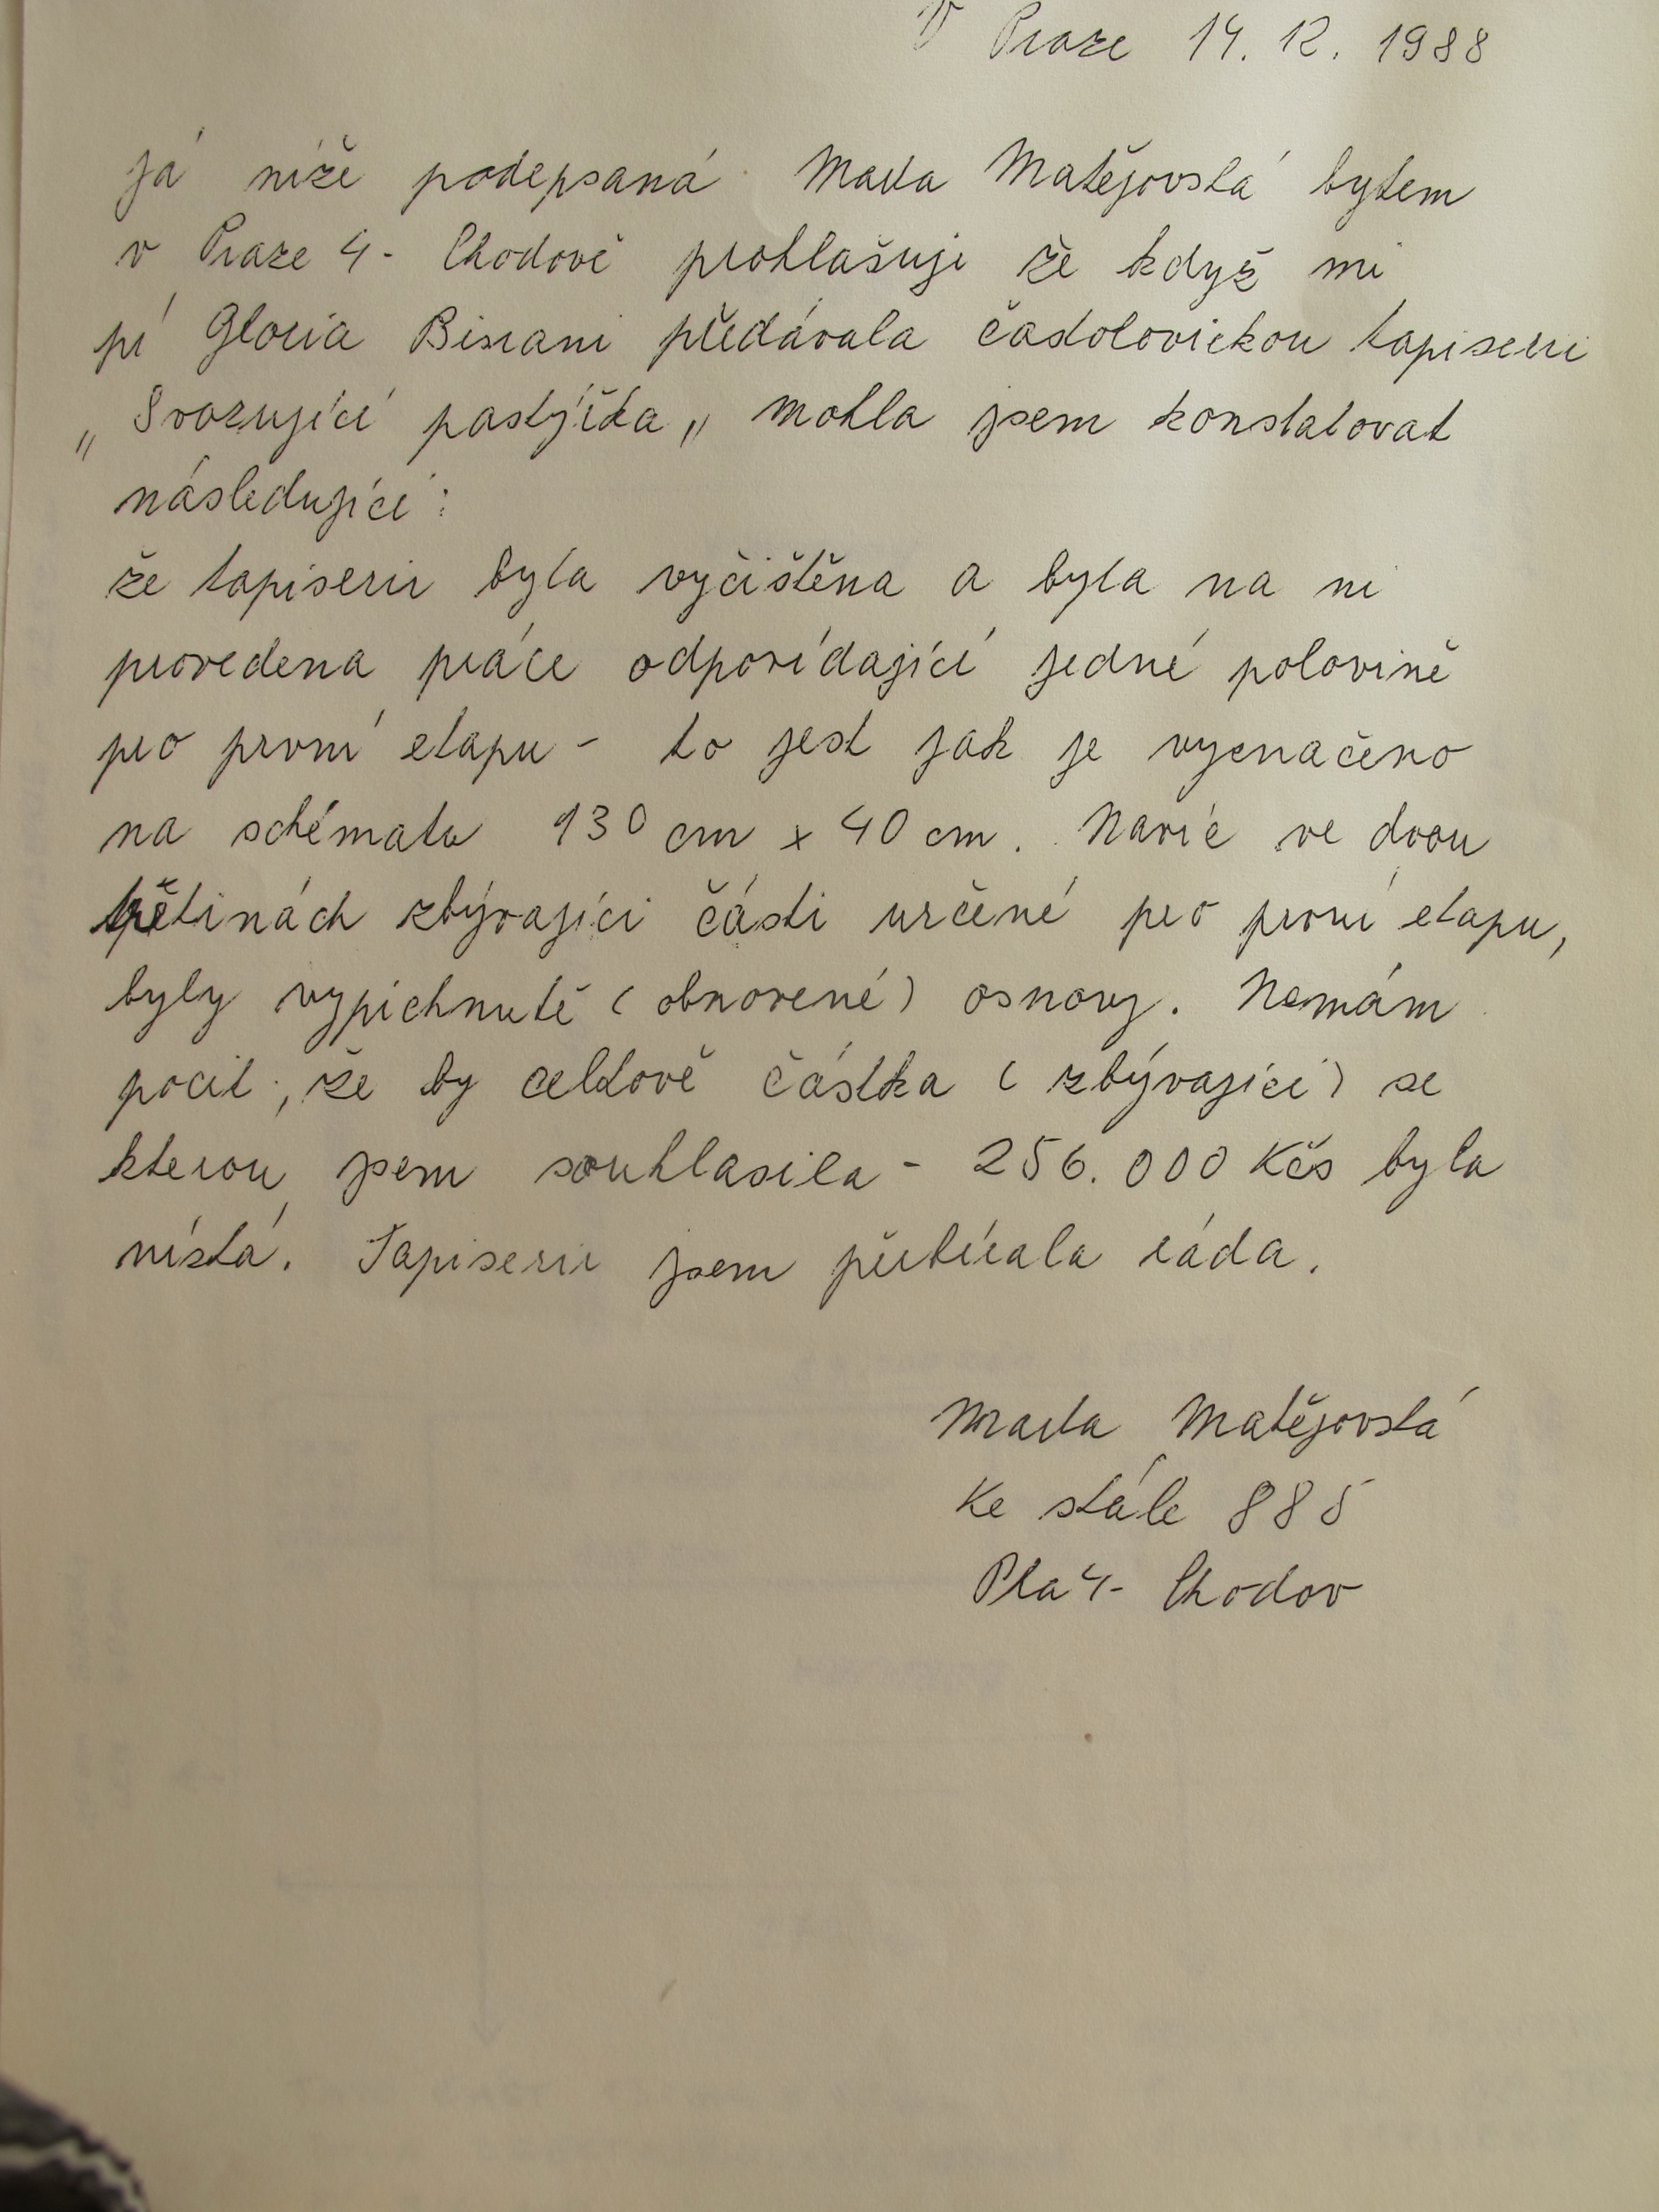 V Praze 14. 12. 1988
Já níže podepsaná Marta Matějovská bytem
v Praze 4 - Chodově prohlašuji že když mi
pí Gloria Birrani předávala častolovickou tapiserii
„Svazující pastýřka„ mohla jsem konstatovat
následující:
že tapiserii byla vyčištěna a byla na ni
provedena práce odpovídající jedné polovině
pro první etapu - to jest jak je vyznačeno
na schématu 130 cm x 40 cm. Navíc ve dvou
třetinách zbývající části určené pro první etapu,
byly vypichnuté (obnovené) osnovy. Nemám
pocit, že by celkově částka (zbývající) se
kterou jsem souhlasila - 256.000 Kčs byla
nízká. Tapiserii jsem přebírala ráda.
Marta Matějovská
Ke stále 885
Pha 4 - Chodov